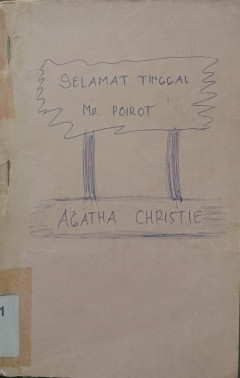 SELAMAT TINGGAL
MR. POIROT
AGATHA CHRISTIE
1